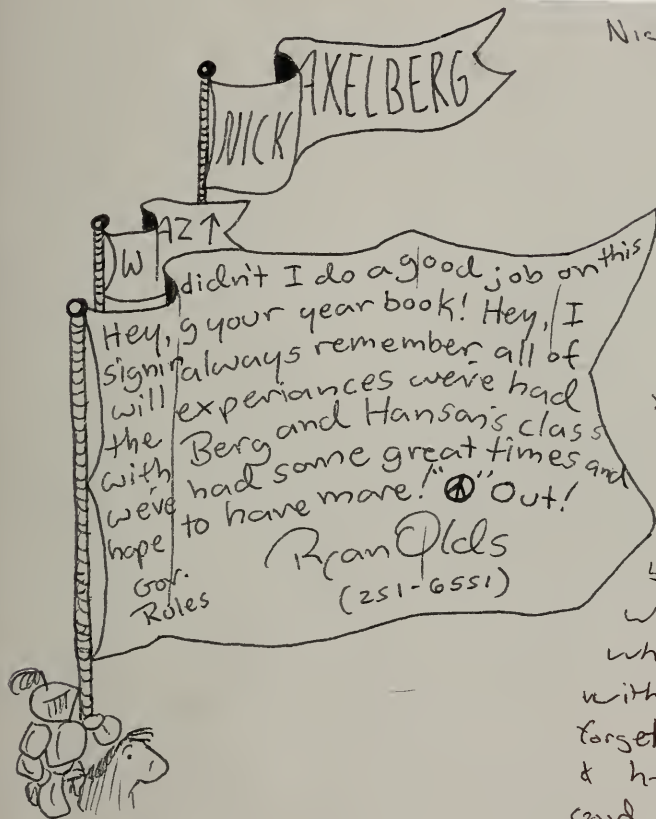 NICK AXELBERG
WAZ↑
Nic
Hey, didn't I do a good job on this
signing your year book! Hey, I
will always remember all of
the experiances we've had
with Berg and Hanson's class
we've had some great times and
hope to have more! "☮" Out!
Gov.
Rules
Ryan Olds
(251-6551)
w
wh
with
forget
& h